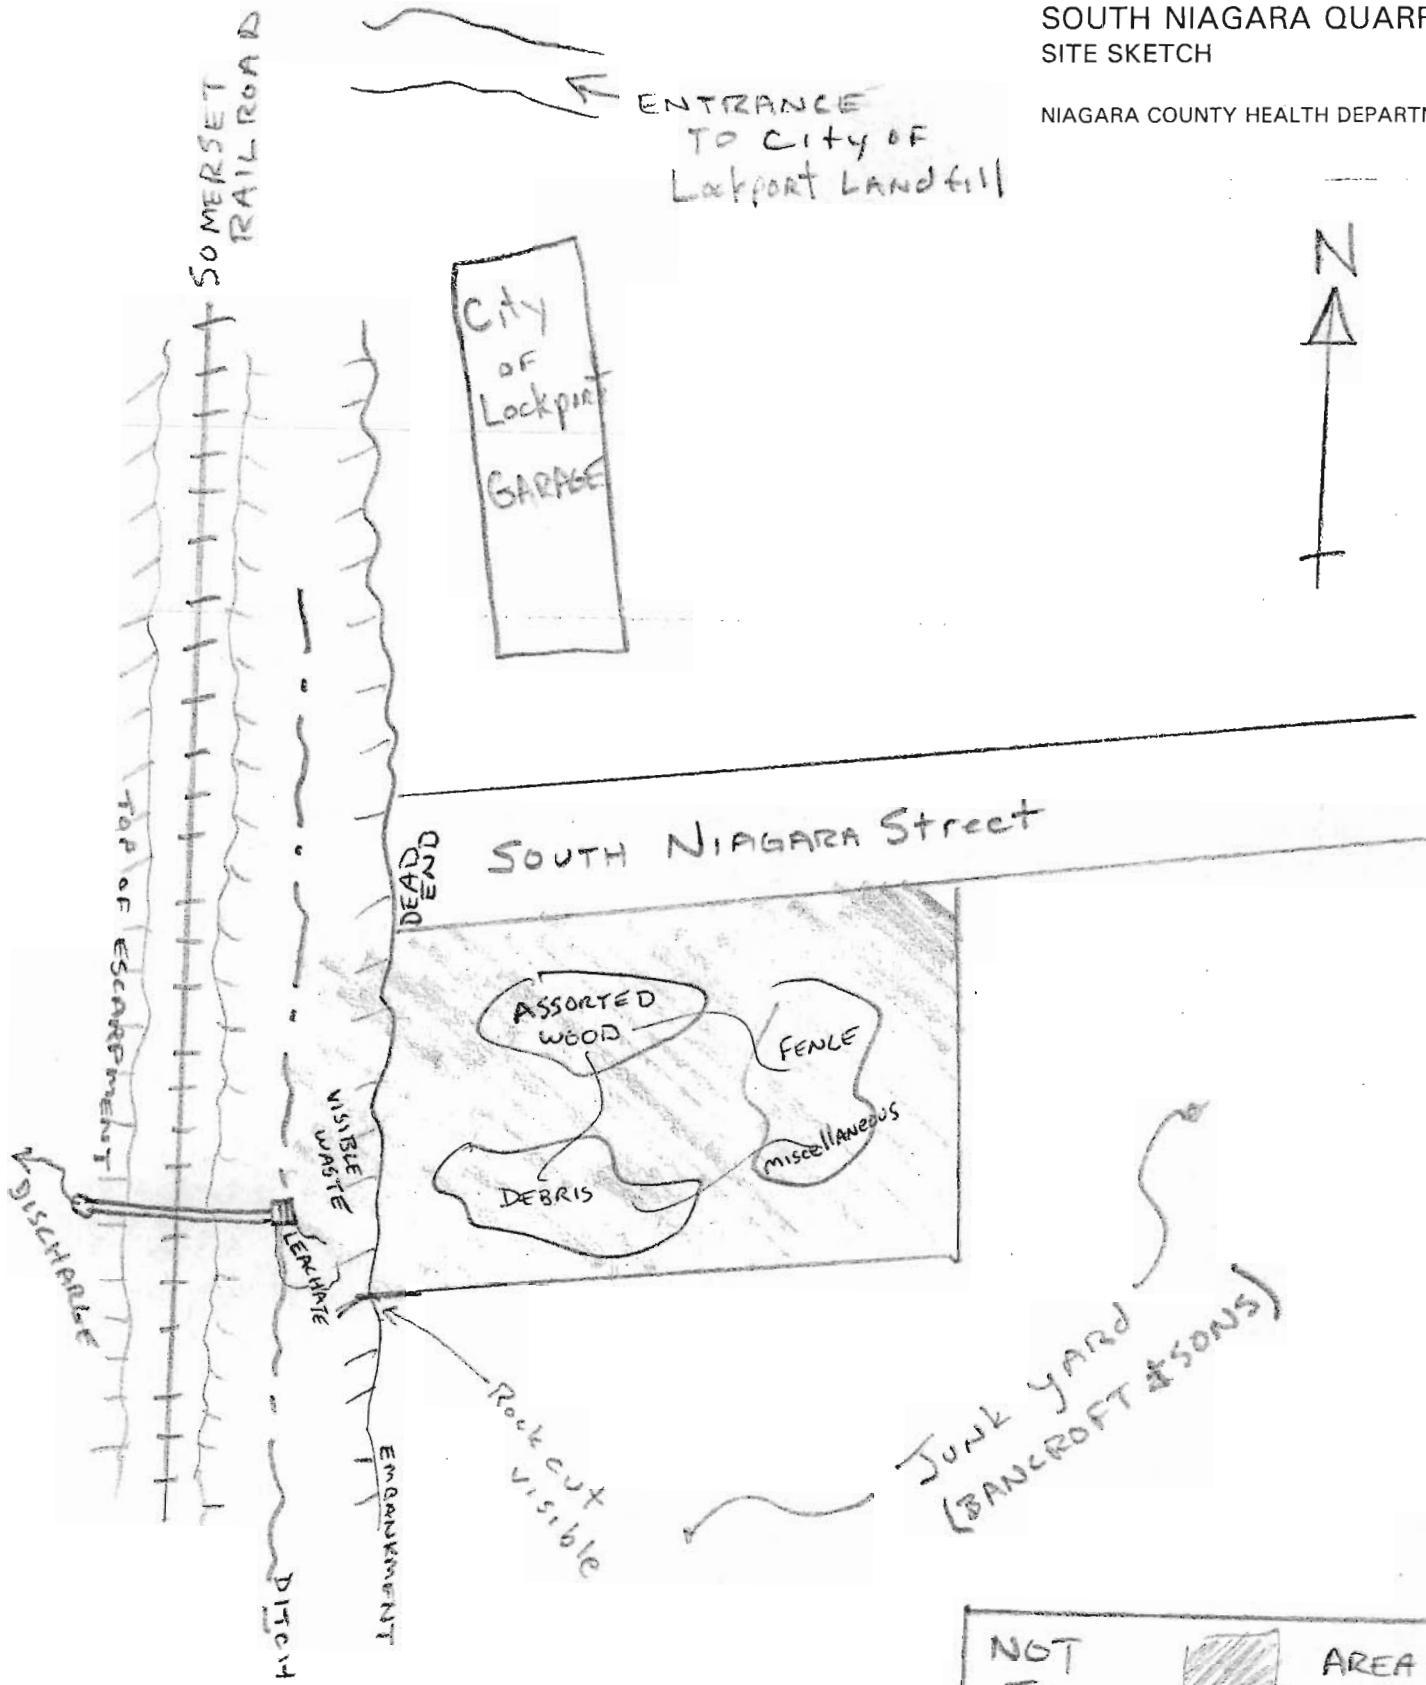 SOUTH NIAGARA QUARR
SITE SKETCH
NIAGARA COUNTY HEALTH DEPARTM
SOMERSET
RAILROAD
ENTRANCE
TO City OF
Lockport LANdfill
N
City
OF
Lockport
GARAGE
SOUTH NIAGARA Street
DEAD
END
TOP OF ESCARPMENT
ASSORTED
WOOD
FENCE
MISCELLANEOUS
DEBRIS
VISIBLE
WASTE
LEACHATE
DISCHARGE
Rock cut
visible
JUNK YARD
(BANCROFT & SONS)
EMBANKMENT
DITCH
NOT
AREA